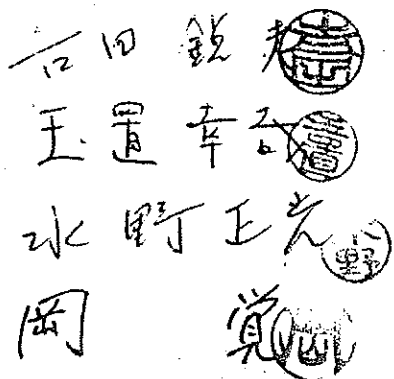 吉田鋭夫
玉置幸哉
水野正光
岡覚